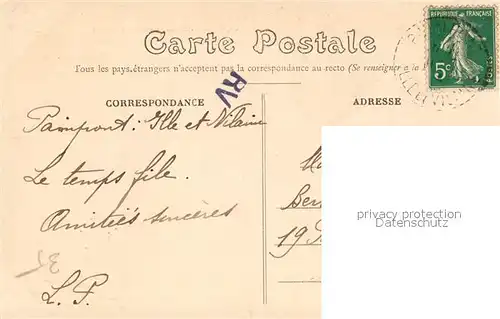 Carte Postale
Tous les pays étrangers n'acceptent pas la correspondance au recto (Se renseigner à la
RÉPUBLIQUE FRANÇAISE
5c
POSTES
RV
CORRESPONDANCE
ADRESSE
Paimpont: Ille et Vilaine
Le temps file.
Amitiés sincères
L. P.
Ber
19
privacy protection
Datenschutz